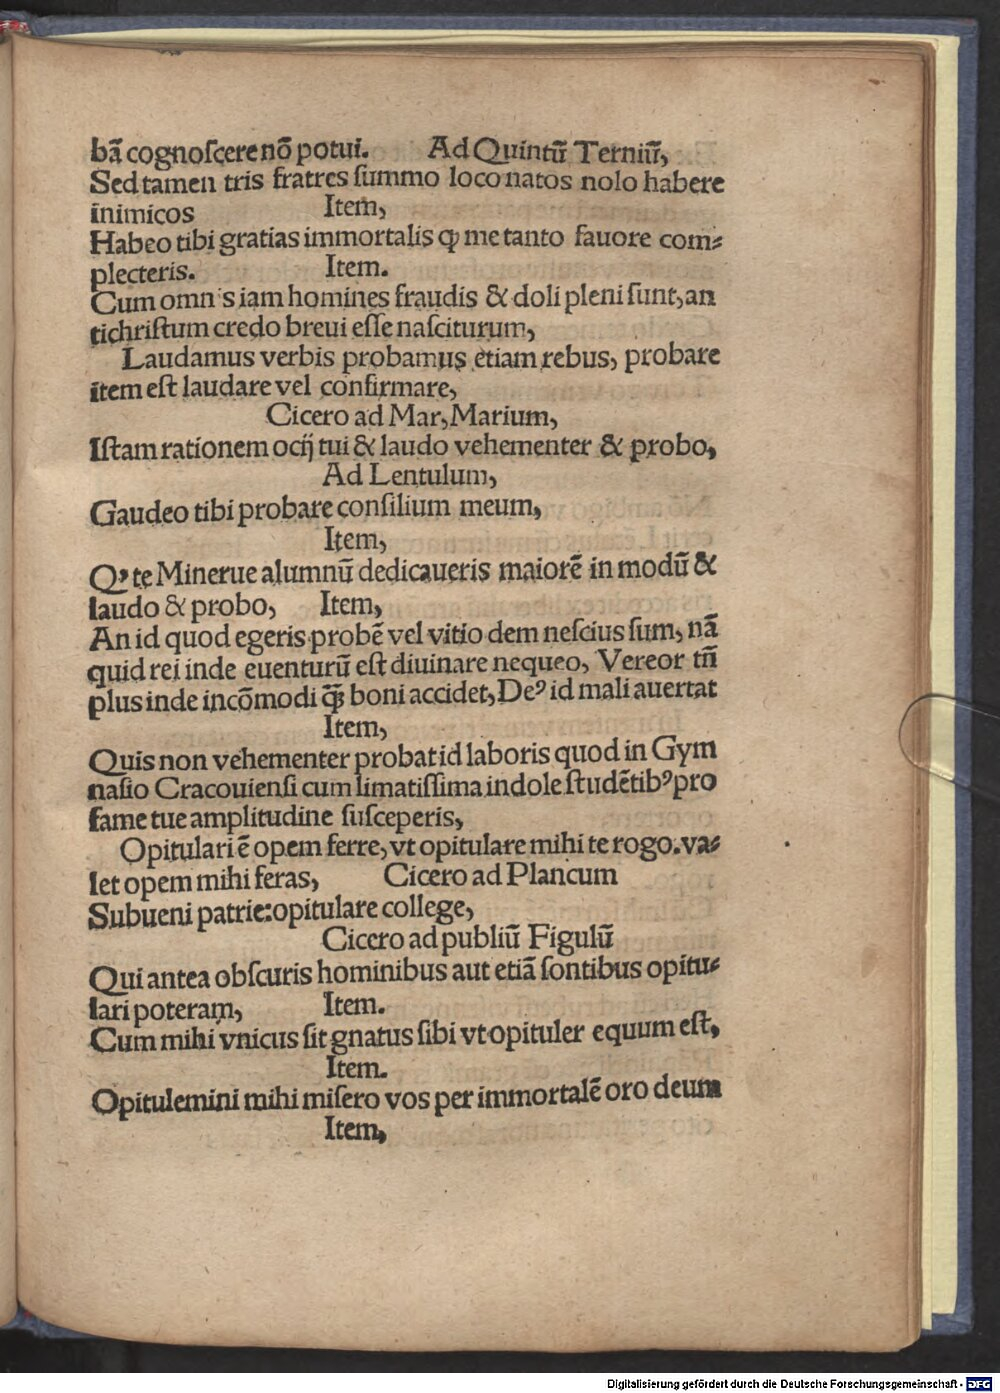 bā cognoſcere nō potui. Ad Quintū Terniū,
Sed tamen tris fratres ſummo loco natos nolo habere
inimicos Item,
Habeo tibi gratias immortalis ꝙ me tanto fauore com⸗
plecteris. Item.
Cum omnis iam homines fraudis & doli pleni ſunt, an
tichriſtum credo breui eſſe naſciturum,
Laudamus verbis probamus etiam rebus, probare
item eſt laudare vel confirmare,
Cicero ad Mar, Marium,
Iſtam rationem ocij tui & laudo vehementer & probo,
Ad Lentulum,
Gaudeo tibi probare conſilium meum,
Item,
Q, te Minerue alumnū dedicaueris maiorē in modū &
laudo & probo, Item,
An id quod egeris probē vel vitio dem neſcius ſum, nā
quid rei inde euenturū eſt diuinare nequeo, Vereor tn̄
plus inde incōmodi ꝙ̄ boni accidet, Deꝰ id mali auertat
Item,
Quis non vehementer probat id laboris quod in Gym
naſio Cracouienſi cum limatiſſima indole ſtudētibꝰ pro
fame tue amplitudine ſuſceperis,
Opitulari ē opem ferre, vt opitulare mihi te rogo. va⸗
let opem mihi feras, Cicero ad Plancum
Subueni patrie: opitulare college,
Cicero ad publiū Figulū
Qui antea obſcuris hominibus aut etiā ſontibus opitu⸗
lari poteram, Item.
Cum mihi vnicus ſit gnatus ſibi vt opituler equum eſt,
Item.
Opitulemini mihi miſero vos per immortalē oro deum
Item,
Digitalisierung gefördert durch die Deutsche Forschungsgemeinschaft - DFG